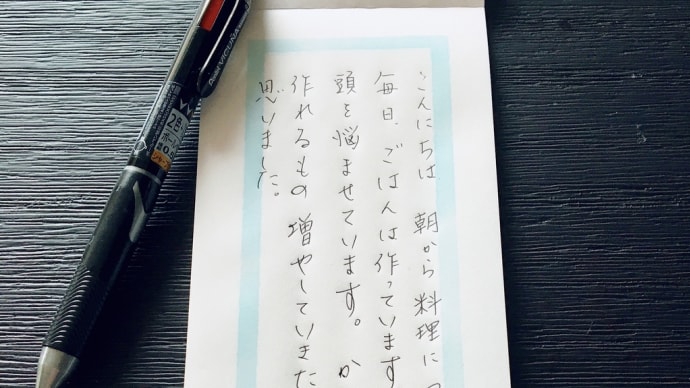 こんにちは 朝から料理に
毎日、ごはんは作っています
頭を悩ませています。か
作れるもの 増やしていきた
思いました。
Pentel VICUÑA
2色